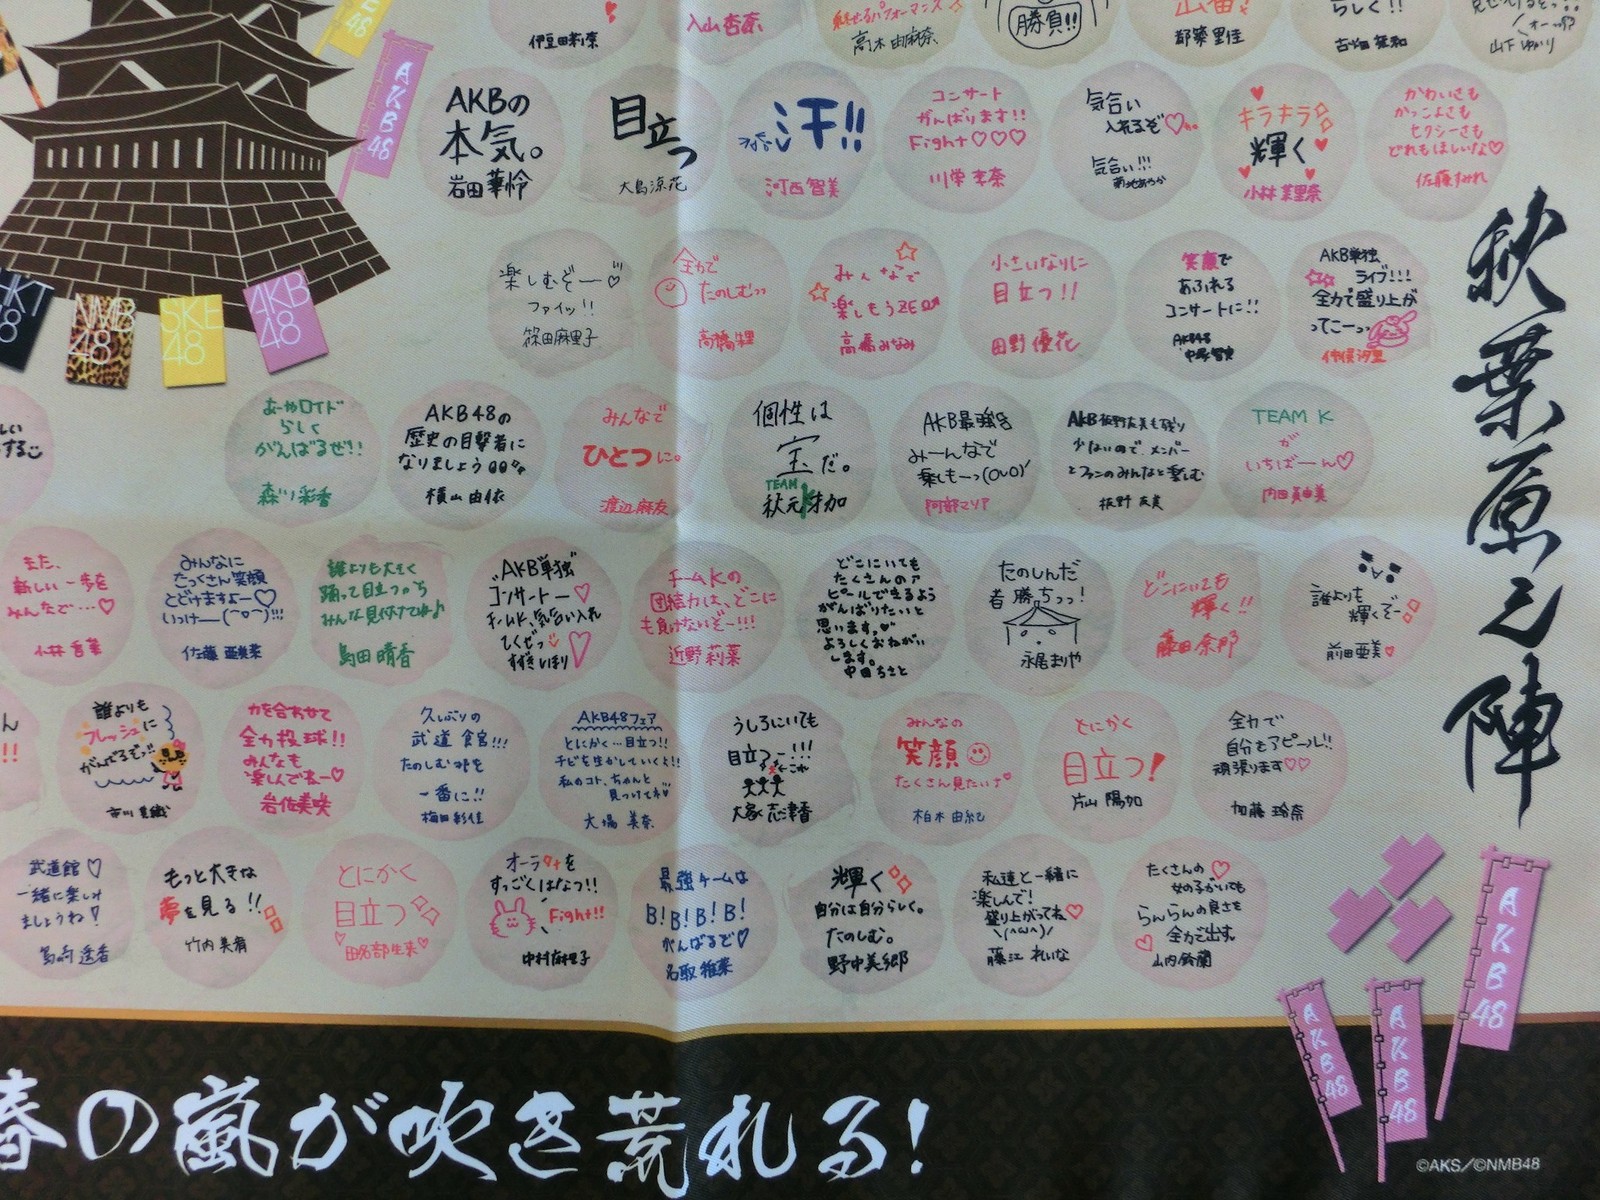 伊豆田莉奈
入山杏奈
魅せるパフォーマンス
高木由麻奈
勝負!!
都築里佳
らしく!!
古畑奈和
山下ゆかり
AKB48
AKBの
本気。
岩田華怜
目立つ
大島涼花
汗!!
河西智美
コンサート
がんばります!!
Fight♡♡♡
川栄李奈
気合い
入れるぞ♡
気合い!!!
菊地あやか
キラキラ
輝く
小林茉里奈
かわいさも
かっこよさも
セクシーさも
どれもほしいな♡
佐藤すみれ
楽しむぞー♡
ファイッ!!
篠田麻里子
全力で
たのしむっ
高橋朱里
みんなで
楽しもうZE
高橋みなみ
小さいなりに
目立つ!!
田野優花
笑顔で
あふれる
コンサートに!!
AKB48
中塚智実
AKB単独
ライブ!!!
全力で盛り上が
ってこーっ
仲俣汐里
HKT48
NMB48
SKE48
AKB48
あーやロイド
らしく
がんばるぜ!!
森川彩香
AKB48の
歴史の目撃者に
なりましょう
横山由依
みんなで
ひとつに。
渡辺麻友
個性は
宝だ。
TEAM K
秋元才加
AKB最強!!
みーんなで
楽しもーっ(OVO)
阿部マリア
AKB板野友美も残り
少ないので、メンバー
とファンのみんなと楽しむ
板野友美
TEAM K
が
いちばーん♡
内田眞由美
また、
新しい一歩を
みんなで…♡
小林香菜
みんなに
たっくさん笑顔
とどけますよー♡
いっけー(^o^)!!!
佐藤亜美菜
誰よりも大きく
踊って目立つっち
みんな見付けてね♪
島田晴香
AKB単独
コンサートー♡
チームK、気合い入れ
てくぜっ
すずきまりや
チームKの
団結力は、どこに
も負けないぞー!!!
近野莉菜
どこにいても
たくさんのア
ピールできるよう
がんばりたいと
思います。♥
よろしくおねがい
します。
中田ちさと
たのしんだ
者勝ちっっ!
永尾まりや
どこにいても
輝く!!
藤田奈那
誰よりも
輝くぞー
前田亜美♥
誰よりも
フレッシュに
がんばるぞっ!!
市川美織
力を合わせて
全力投球!!
みんなも
楽しんでねー♡
岩佐美咲
久しぶりの
武道館!!!
たのしむ事を
一番に!!
梅田彩佳
AKB48フェア
とにかく…目立つ!!
チビを生かしていくよ!!
私のコト、ちゃんと
見つけてネ♡
大場美奈
うしろにいても
目立つー!!!
大家志津香
みんなの
笑顔
たくさん見たいナ
柏木由紀
とにかく
目立つ!
片山陽加
全力で
自分をアピール!!
頑張ります♡♡
加藤玲奈
武道館♡
一緒に楽しみ
ましょうね!
島崎遥香
もっと大きな
夢を見る!!
竹内美宥
とにかく
目立つ
田名部生来
オーラを
すっごくはなつ!!
Fight!!
中村麻里子
最強チームは
B!B!B!B!
がんばるで♡
名取稚菜
輝く
自分は自分らしく。
たのしむ。
野中美郷
私達と一緒に
楽しんで!
盛り上がってね♡
\(^ω^)/
藤江れいな
たくさんの♡
女の子がいても
らんらんの良さを
全力で出す
山内鈴蘭
秋葉原之陣
春の嵐が吹き荒れる!
AKB48
AKB48
AKB48
©AKS/©NMB48